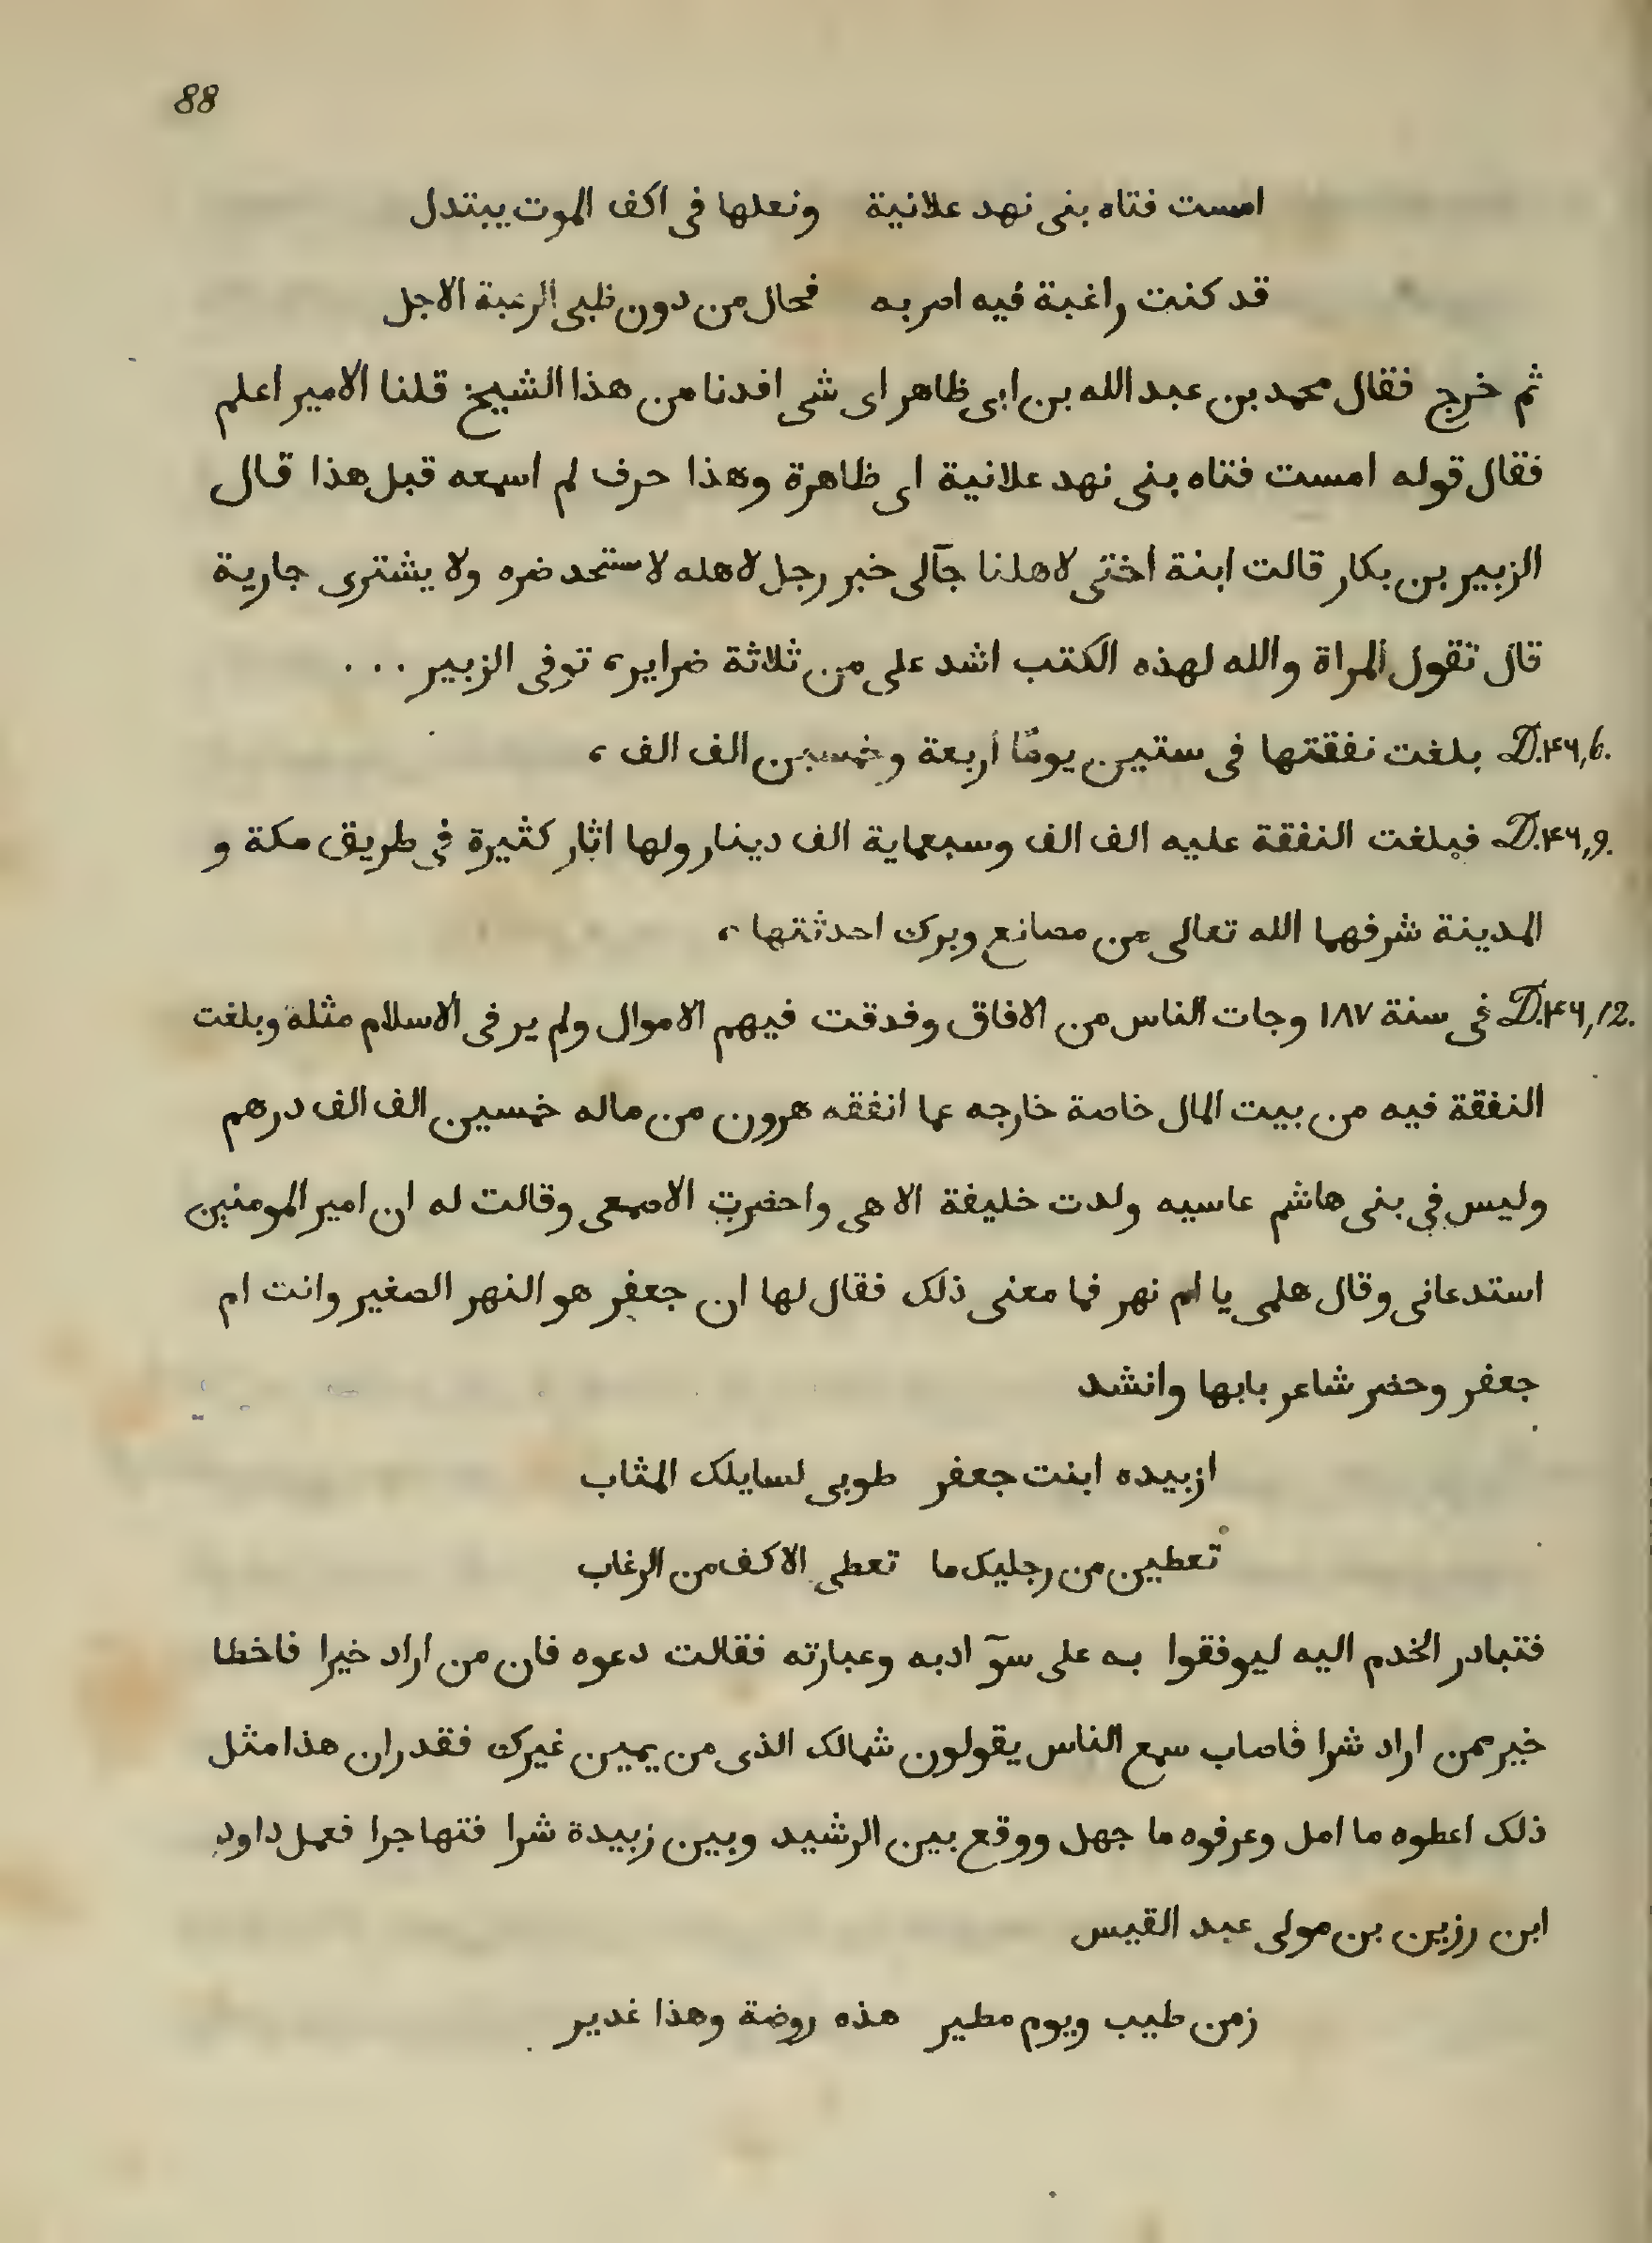 88
امست فتاه بنى نهد علانية ونعلها فى اكف الموت يبتدل
قد كنت راغبة فيه امر به فحال من دون ظبى الرغبة الاجل
ثم خرج فقال محمد بن عبد الله بن ابى ظاهر اى شى افدنا من هذا الشيخ قلنا الامير اعلم
فقال قوله امست فتاه بنى نهد علانية اى ظاهرة وهذا حرف لم اسمعه قبل هذا قال
الزبير بن بكار قالت ابنة اختى لاهلنا جآلى خبر رجل لاهله لا ستحد ضره ولا يشترى جارية
قال تقول المراة والله لهذه الكتب اشد على من ثلاثة ضراير، توفى الزبير . . .
D.۲۴۶,6. بلغت نفقتها فى ستين يومًا اربعة وخمسين الف الف ،
D.۲۴۶,9. فبلغت النفقة عليه الف الف وسبعماية الف دينار ولها اثار كثيرة فى طريق مكة و
المدينة شرفهما الله تعالى من مصانع وبرك احدثتها ،
D.۲۴۶,12. فى سنة ١٨٧ وجات الناس من الافاق وفدقت فيهم الاموال ولم ير فى الاسلام مثله وبلغت
النفقة فيه من بيت المال خاصة خارجه عما انفقه هرون من ماله خمسين الف الف درهم
وليس فى بنى هاشم عاسيه ولدت خليفة الا هى واحضرت الاصمعى وقالت له ان امير المومنين
استدعانى وقال هلمى يا ام نهر فما معنى ذلك فقال لها ان جعفر هو النهر الصغير وانت ام
جعفر وحضر شاعر بابها وانشد
ازبيده ابنت جعفر طوبى لسايلك المثاب
تعطين من رجليك ما تعطى الاكف من الرغاب
فتبادر الخدم اليه ليوفقوا به على سوآ ادبه وعبارته فقالت دعوه فان من اراد خيرا فاخطا
خير ممن اراد شرا فاصاب سمع الناس يقولون شمالك الذى من يمين غيرك فقدر ان هذا مثل
ذلك اعطوه ما امل وعرفوه ما جهل ووقع بين الرشيد وبين زبيدة شرا فتهاجرا فعمل داود
ابن رزين بن مولى عبد القيس
زمن طيب ويوم مطير هذه روضة وهذا غدير